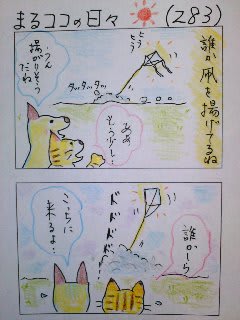 まるココの日々
(283)
誰か凧を揚げてるね
ヒュー
ヒュー
タッタッタッ
うん
揚がりそう
だね
ああ
もう少し…
誰かしら
ドドドドド
こっちに
来るよ…